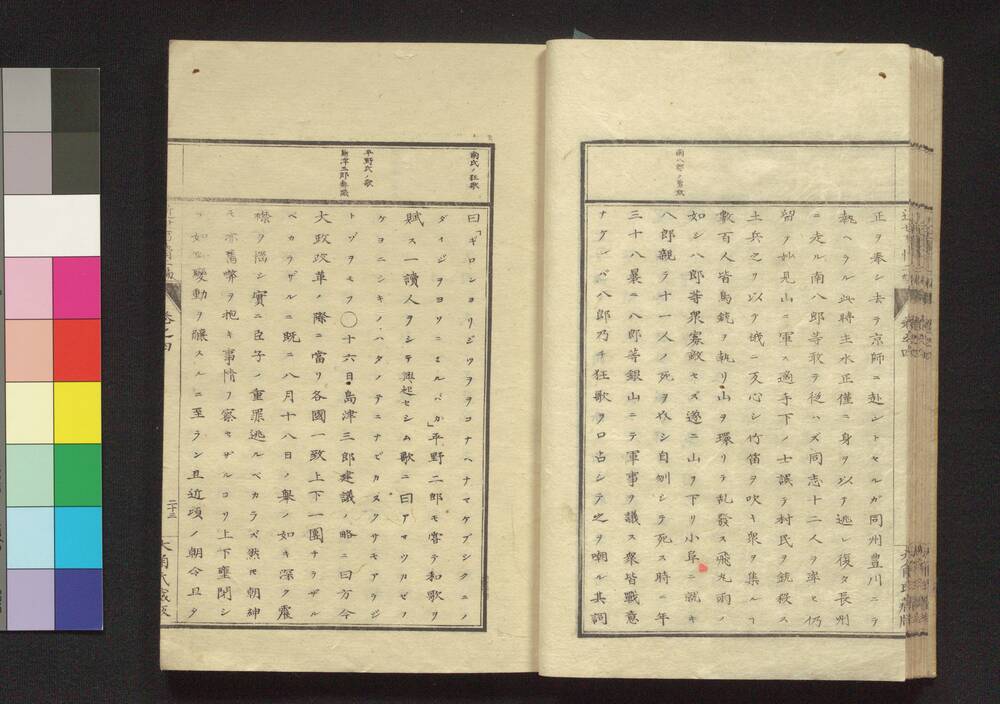 南八郎ノ勇敢
正ヲ奉シ去テ京師ニ赴ントセルガ同州豊川ニテ
執ヘラル此時主水正僅ニ身ヲ以テ逃レ復タ長州
ニ走ル南八郎等敢テ従ハズ同志十二人ヲ率ヒ仍
留テ妙見山ニ軍ス適手下ノ士誤テ村民ヲ銃殺ス
土兵之ヲ以テ戎ニ反心シ竹笛ヲ吹キ衆ヲ集ルヿ
數百人皆鳥銃ヲ執リ山ヲ環リテ乱發ス飛丸雨ノ
如シ八郎等衆寡敵セズ遂ニ山ヲ下リ小阜ニ就キ
八郎親ラ十一人ノ死ヲ扶シ自刎シテ死ス時ニ年
三十八曩ニ八郎等銀山ニテ軍事ヲ議ス衆皆戰意
ナケレバ八郎乃チ狂歌ヲ口占シテ之ヲ嘲ル其詞
南氏ノ狂歌
平野氏ノ歌
島津三郎奏議
曰「ギロンヨリジツヲヲコナヘナマケブシクニノ
ダイジヲヨソニミルバカ」平野二郎モ嘗テ和歌ヲ
賦ス一讀人ヲシテ興起セシム歌ニ曰アマツカゼフ
ケヨニシキノハタノテニナビカヌクサモアラジ
トゾヲモフ〇十六日島津三郎建議ノ略ニ曰方今
大政改革ノ際ニ當リ各國一致上下一團ナラザル
ベカラザルニ既ニ八月十八日ノ擧ノ如キ深ク震
襟ヲ悩シ實ニ臣子ノ重罪逃ルベカラズ然𪜈朝紳
モ亦舊弊ヲ抱キ事情ヲ察セザルヨリ上下壅閉シ
如此變動ヲ釀スルニ至ラン且近頃ノ朝令旦夕
卷之四
二十三